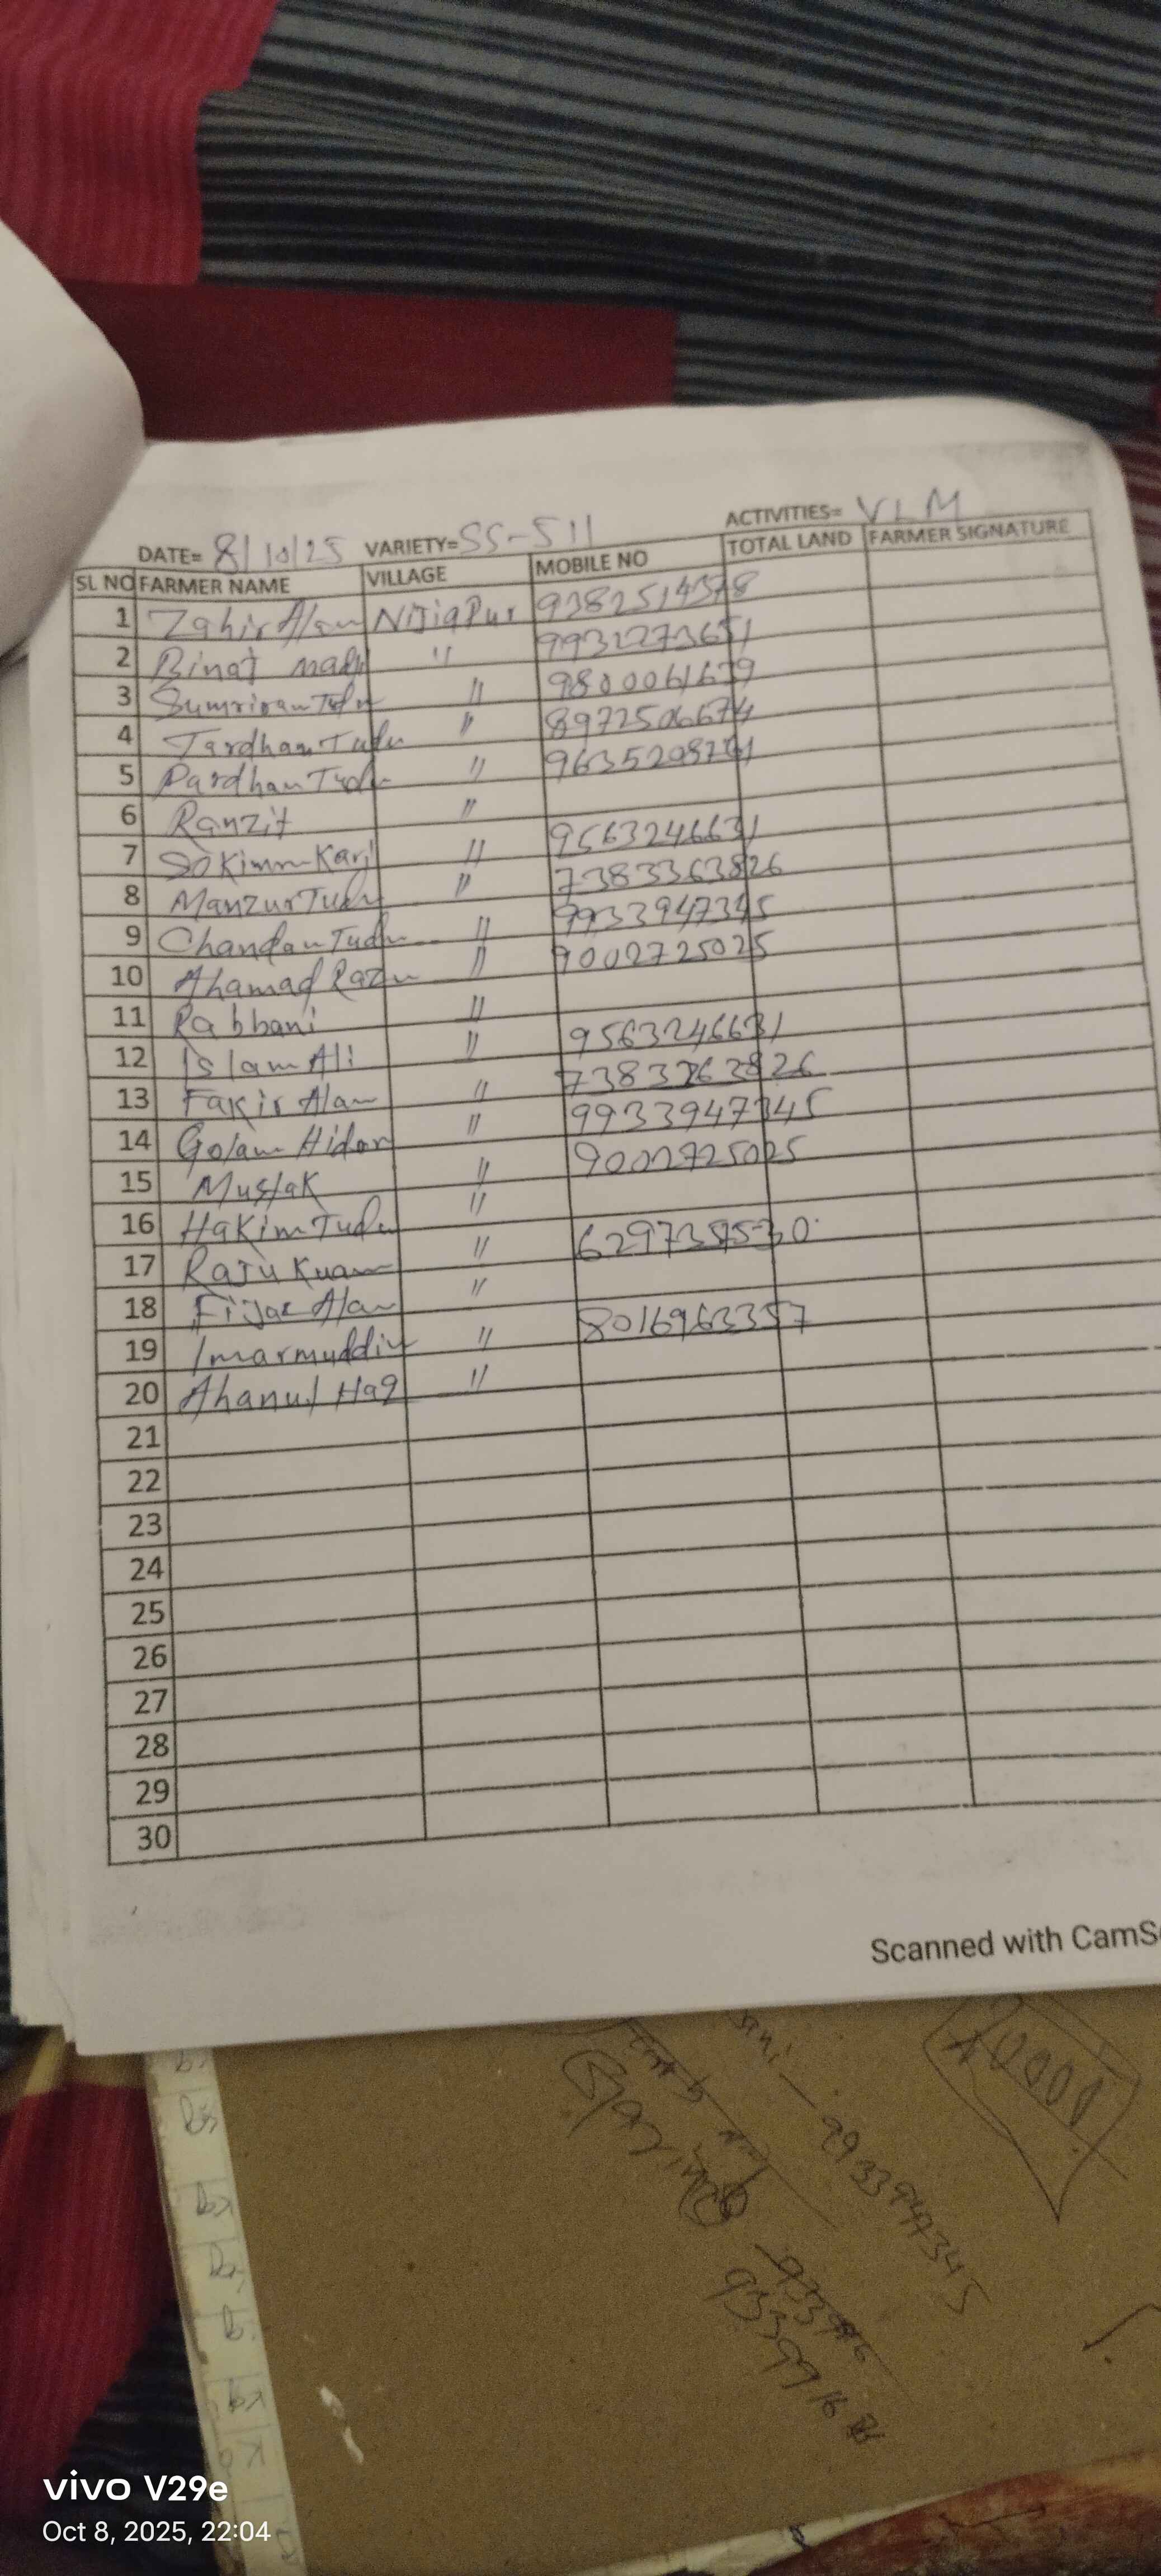 ACTIVITIES= VLM
DATE= 8/10/25 VARIETY= SS-511
SL NO FARMER NAME VILLAGE MOBILE NO TOTAL LAND FARMER SIGNATURE
1 Zahir Alam 9382514378
2 Binat " 9932273651
3 " 9800061639
4 Tardhan Tudu " 8972506674
5 Pardhan Tudu "
6 Ranzit "
7 " 9563246631
8 Manzur Tudu " 7383363826
9 Chandan Tudu " 9933947345
10 Ahamad " 9002725025
11 Rabbani "
12 Islam Ali " 9563246631
13 Fakir Alam " 7383263826
14 Golam Hidar " 9933947345
15 Mustak " 9002725025
16 Hakim Tudu "
17 Raju "
18 Alam "
19 Imarmuddin " 8016963357
20 Ahanul Haq "
21
22
23
24
25
26
27
28
29
30
Scanned with CamS
10000
9933947345
vivo V29e
Oct 8, 2025, 22:04